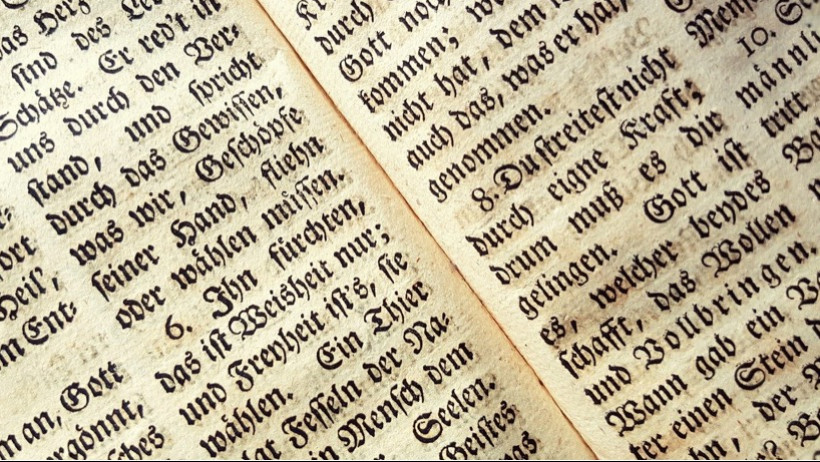 Heil',
Ent:
an, Gott
das Herz
sind des
Schätze. Er red't in
uns durch den Ver:
stand, und spricht
durch das Gewissen,
was wir, Geschöpfe
seiner Hand, fliehn
oder wählen müssen.
6. Ihn fürchten,
das ist Weisheit nur;
und Freyheit ist's, sie
wählen. Ein Thier
Fesseln der Na:
Mensch dem
Seelen.
Geistes
durch
Gott
kommen;
nicht hat, dem
auch das, was er hat,
genommen.
8. Du streitest nicht
durch eigne Kraft;
drum muß es dir
gelingen. Gott ist
es, welcher beydes
schafft, das Wollen
und Vollbringen.
Wann gab ein
ter einen Stein
der
10.
männli
tritt